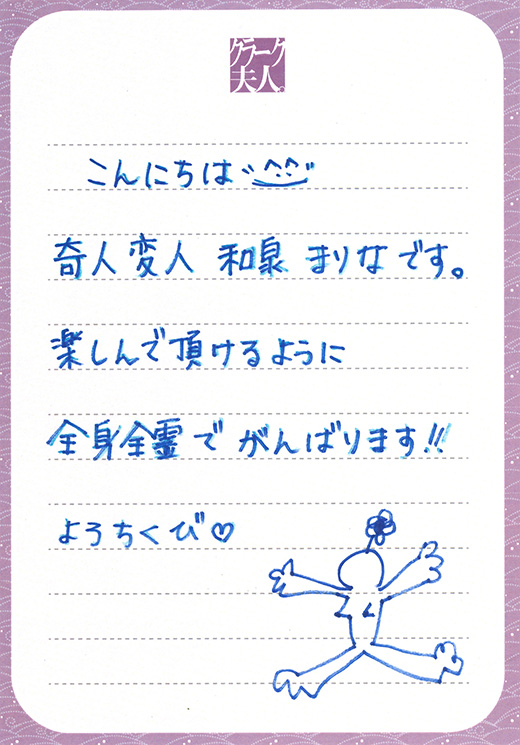 クラーク
夫人。
こんにちは
奇人変人 和泉 まりなです。
楽しんで頂けるように
全身全霊で がんばります!!
よろちくび♡